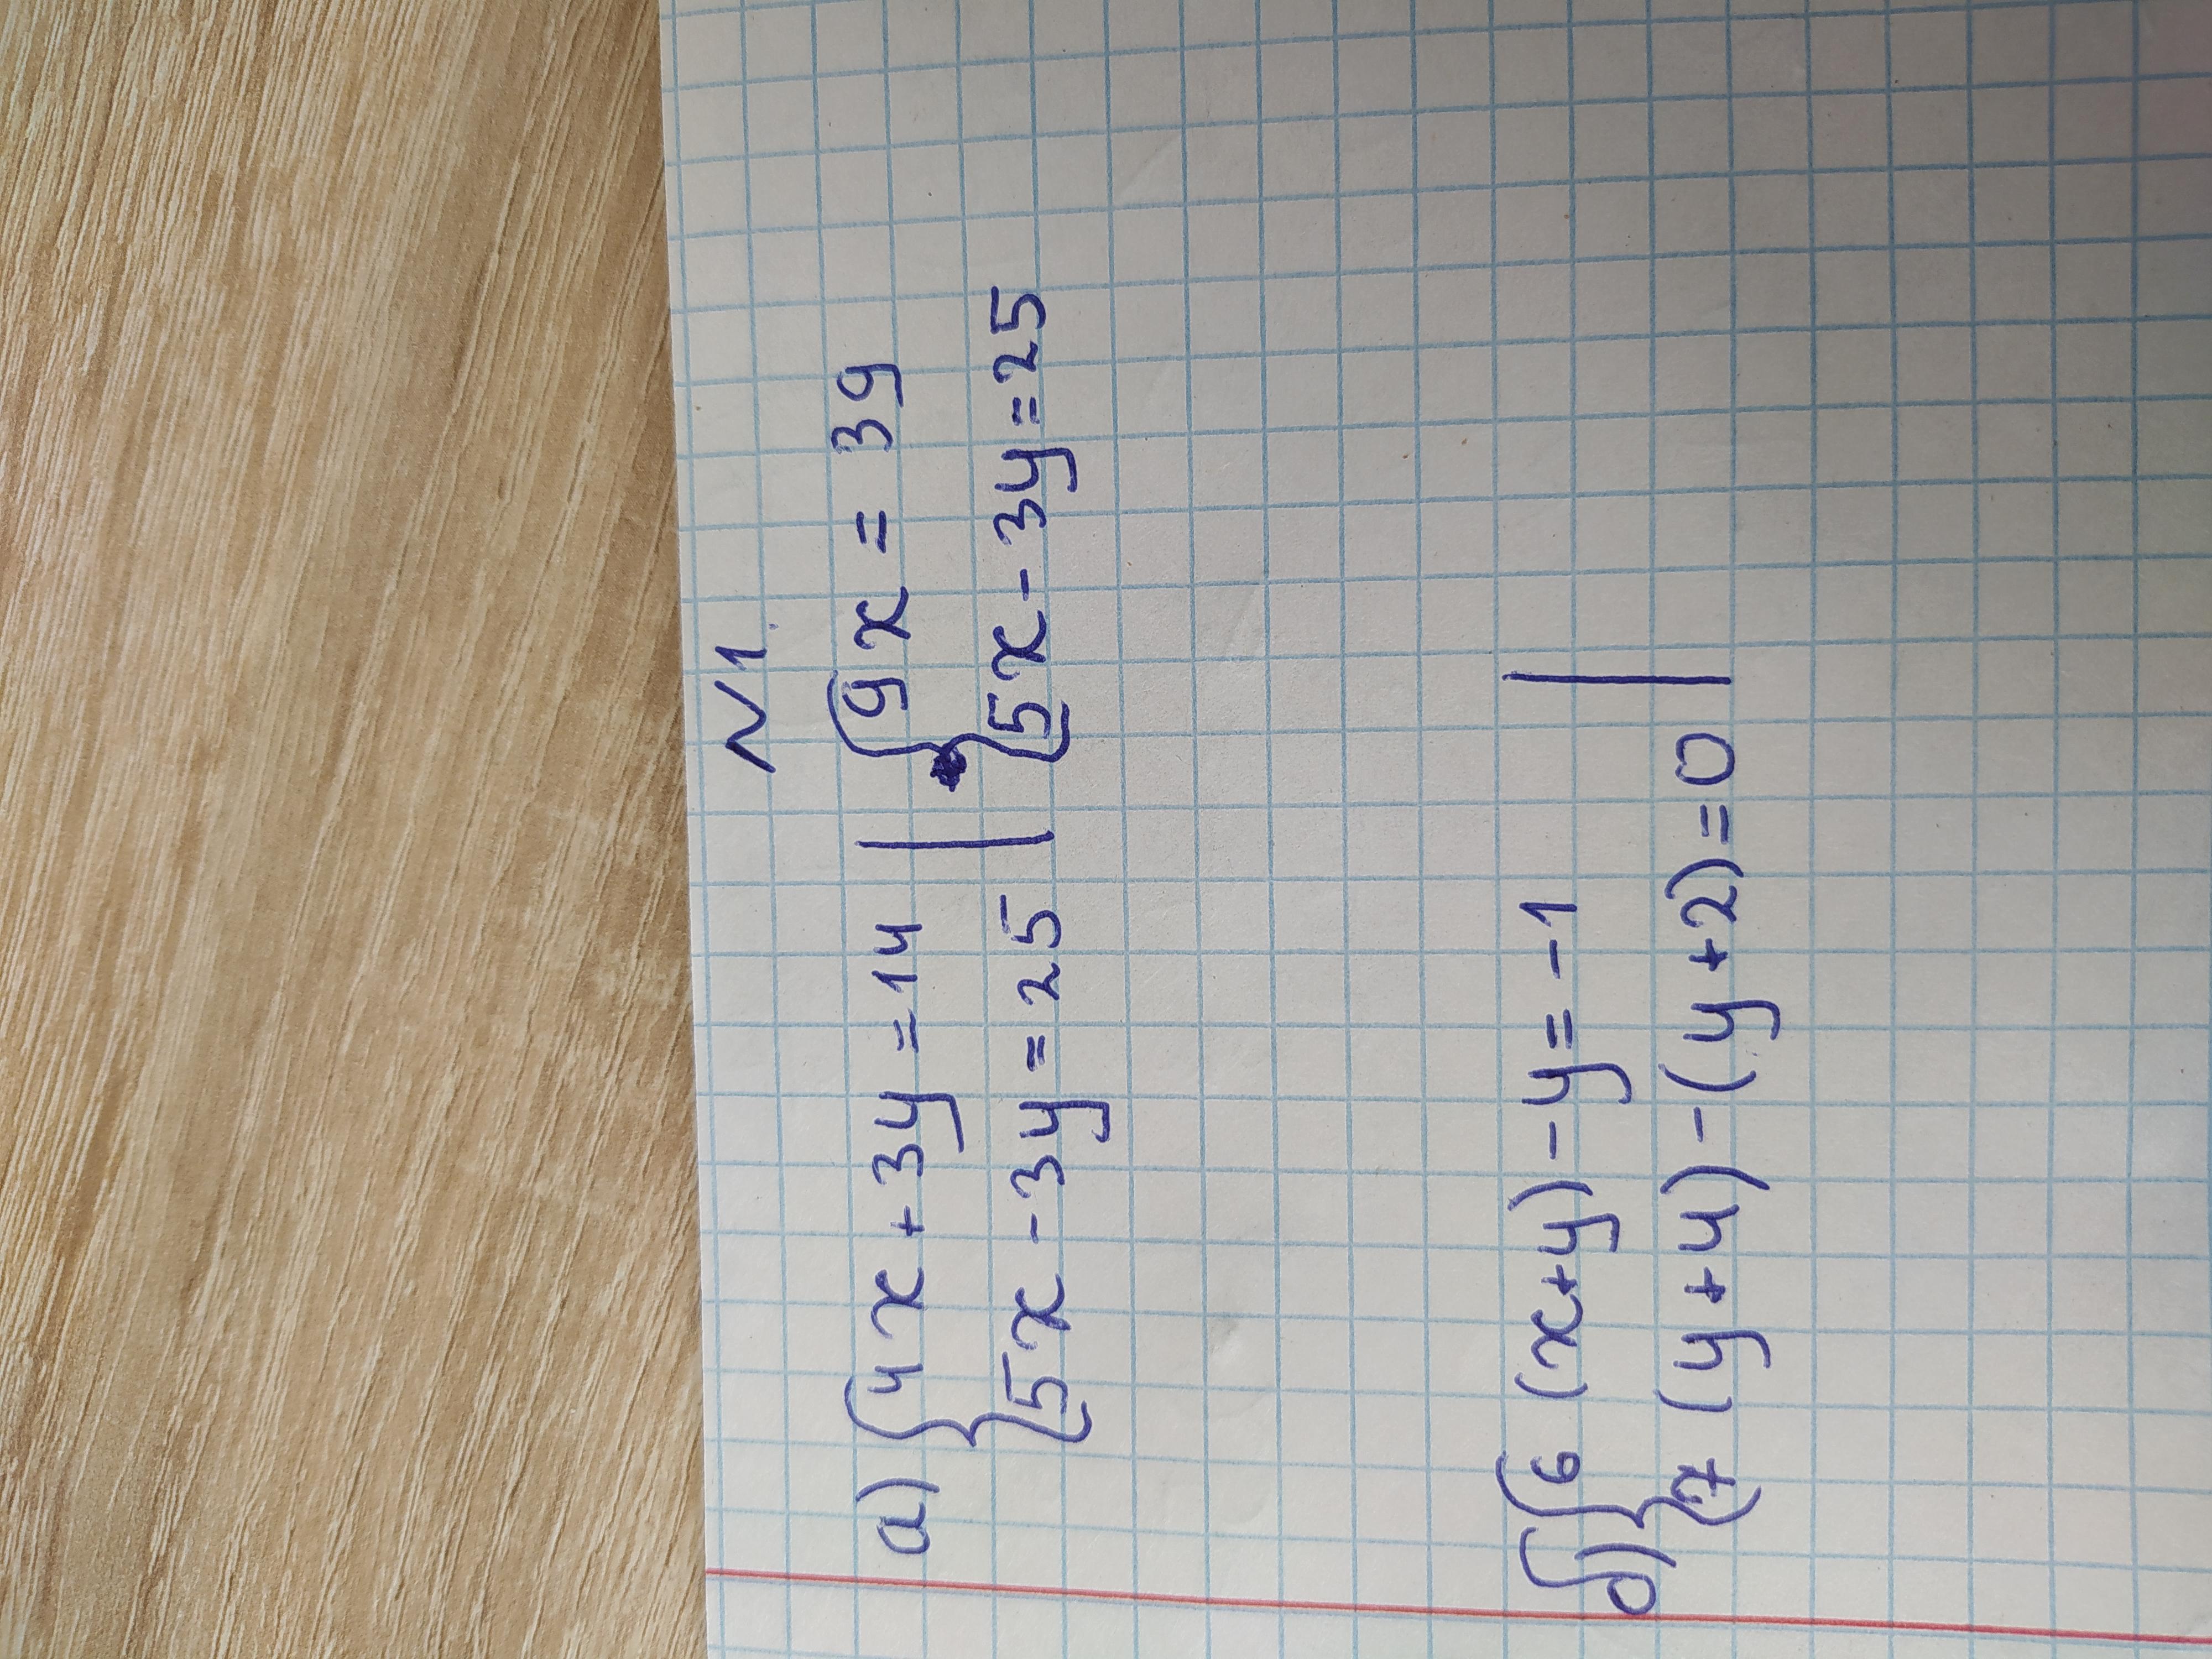 N1.
а) { 4x + 3y = 14 | { 9x = 39
{ 5x - 3y = 25 | { 5x - 3y = 25
б) { 6 (x+y) - y = -1 |
{ 7 (y+4) - (y+2) = 0 |